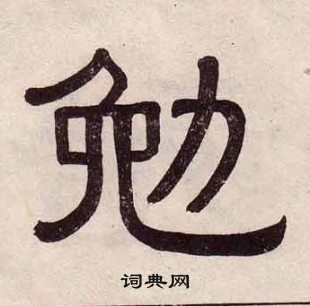 勉
词典网